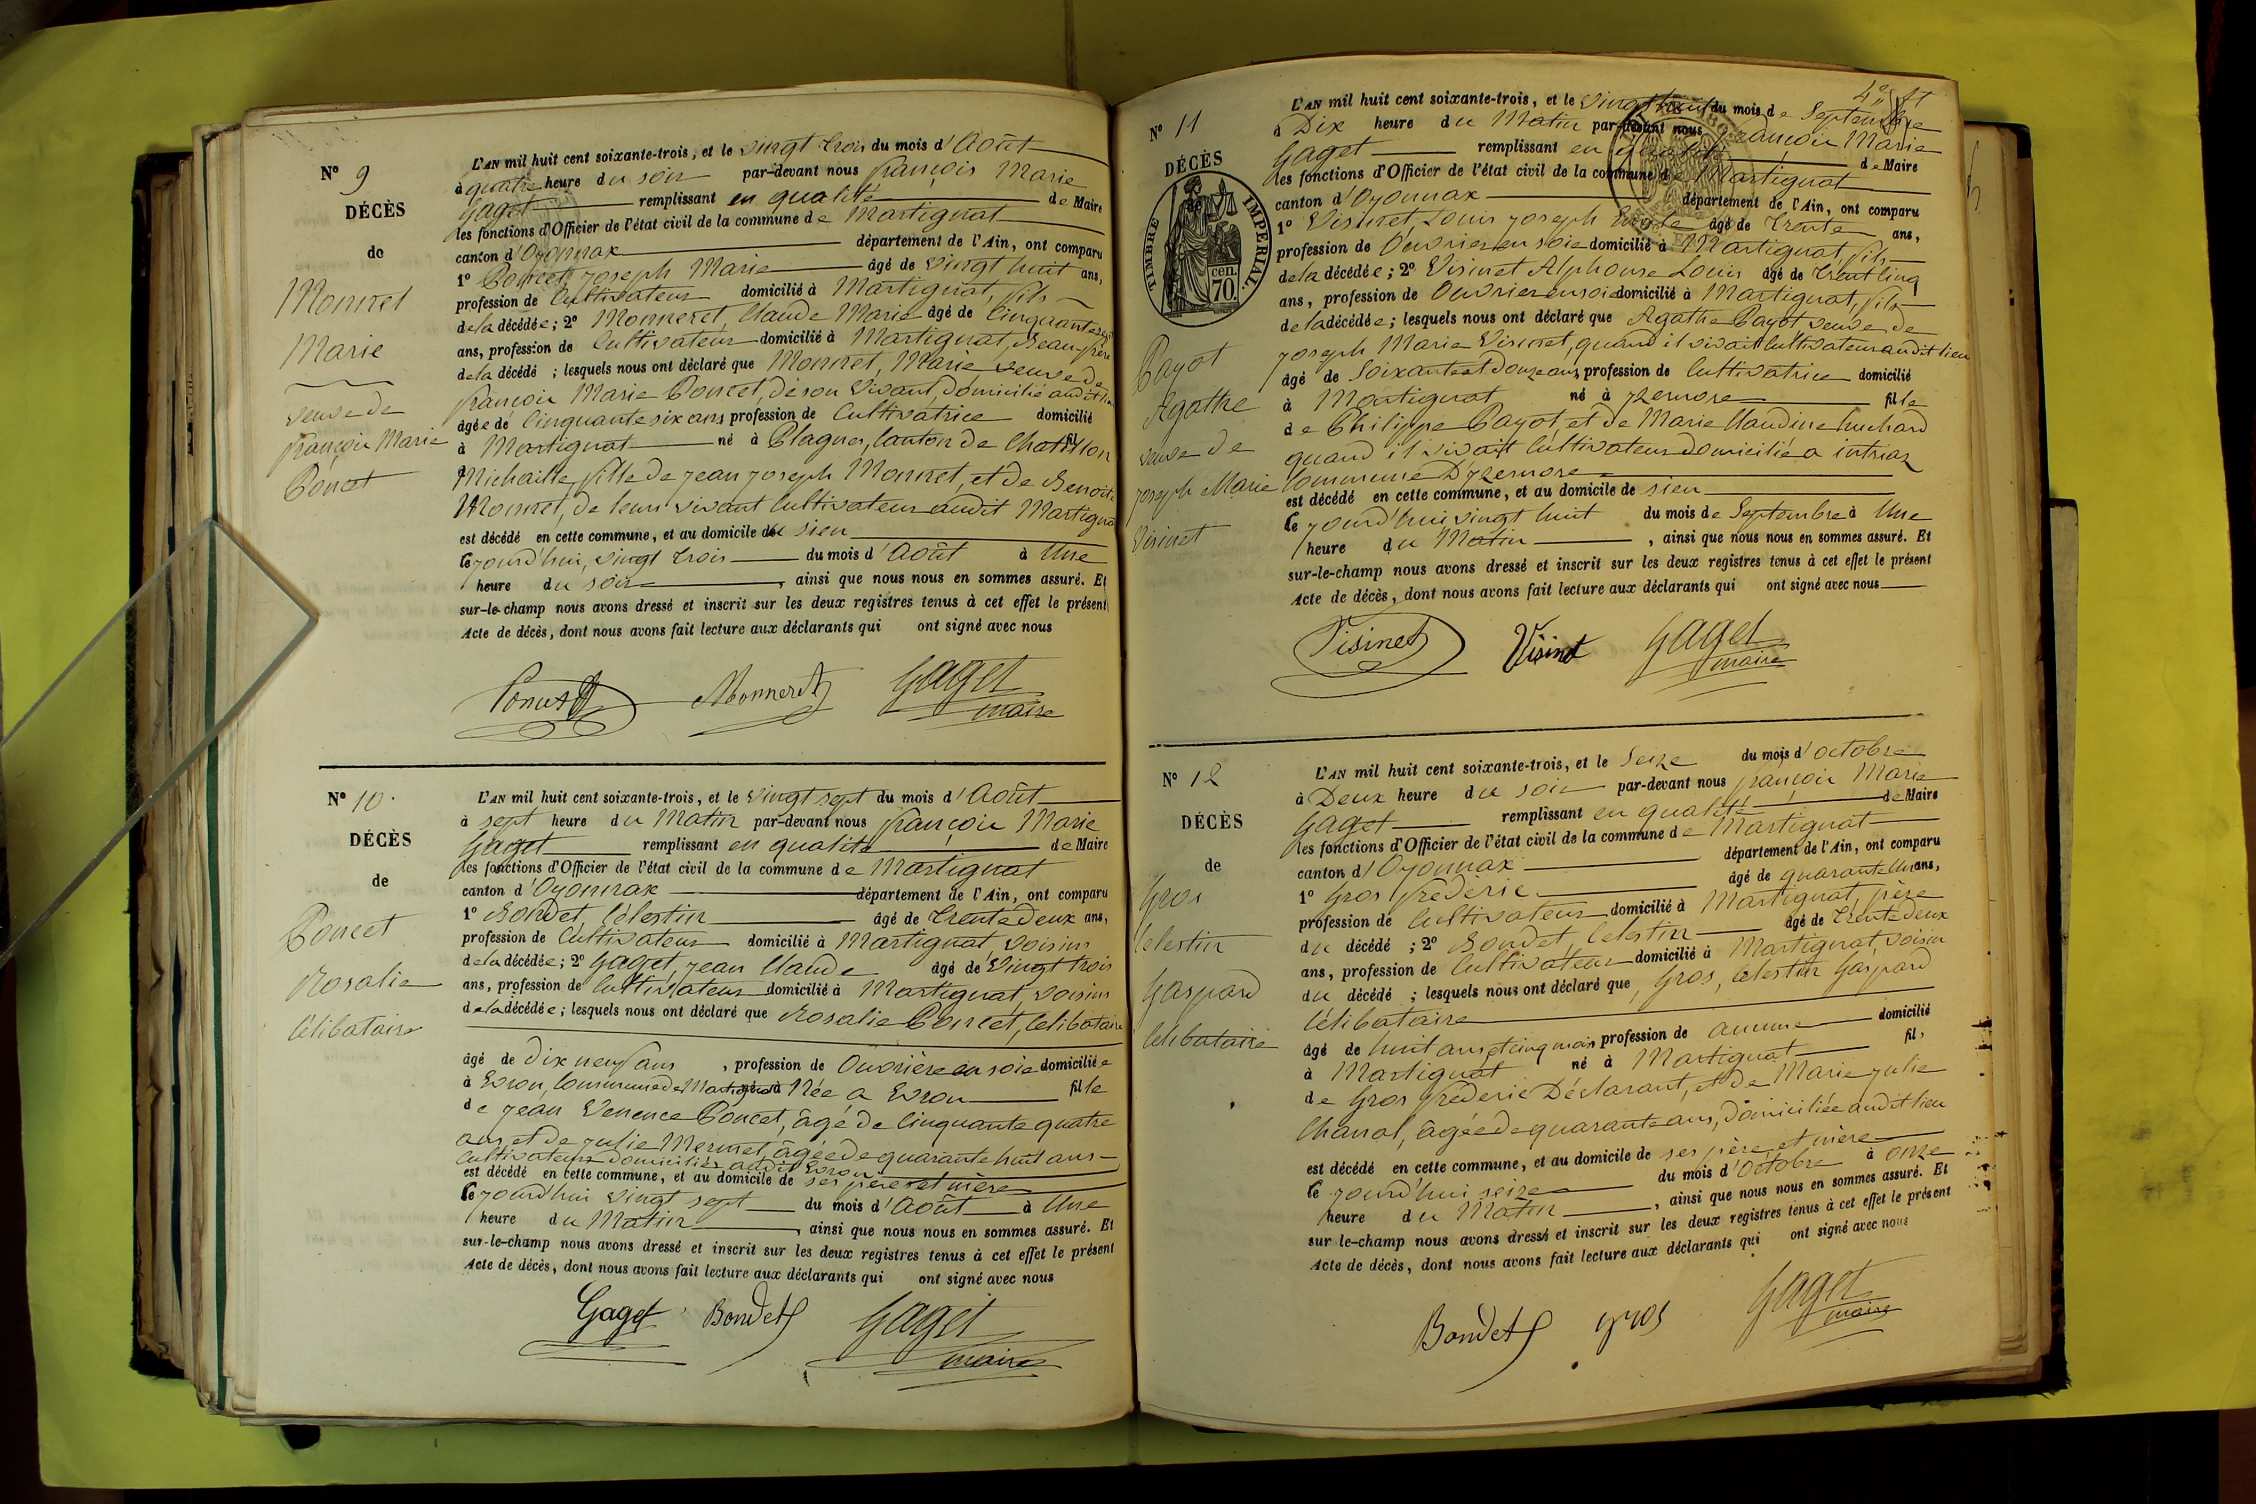 N° 9
DÉCÈS
de
Monnet
Marie
veuve de
françois Marie
Poncet
L'AN mil huit cent soixante-trois, et le vingt trois du mois d'Août
à quatre heure du soir par-devant nous françois Marie
Gaget remplissant en qualité de Maire
les fonctions d'Officier de l'état civil de la commune de Martignat
canton d'Oyonnax département de l'Ain, ont comparu
1° Poncet, joseph Marie âgé de vingt huit ans,
profession de Cultivateur domicilié à Martignat, fils
de la décédée; 2° Monneret, Claude Marie âgé de Cinquante
ans, profession de Cultivateur domicilié à Martignat, Beau-frère
de la décédé ; lesquels nous ont déclaré que Monnet, Marie veuve de
françois Marie Poncet, de son vivant, domicilié audit lieu
âgée de Cinquante six ans profession de Cultivatrice domicilié
à Martignat né à Plagnes, Canton de Chatillon fil
de Michaille, fille de jean joseph Monnet, et de Benoite
Monnet, de leur vivant Cultivateur audit Martignat
est décédé en cette commune, et au domicile de sien
le jourd'hui, vingt trois du mois d'Août à Une
heure du soir , ainsi que nous nous en sommes assuré. Et
sur-le-champ nous avons dressé et inscrit sur les deux registres tenus à cet effet le présent
Acte de décès, dont nous avons fait lecture aux déclarants qui ont signé avec nous
Poncet Monneret Gaget
maire
N° 10
DÉCÈS
de
Poncet
Rosalie
Célibataire
L'AN mil huit cent soixante-trois, et le vingt sept du mois d'Août
à sept heure du Matin par-devant nous françois Marie
Gaget remplissant en qualité de Maire
les fonctions d'Officier de l'état civil de la commune de Martignat
canton d'Oyonnax département de l'Ain, ont comparu
1° Bondet, Célestin âgé de Trente deux ans,
profession de Cultivateur domicilié à Martignat, voisin
de la décédée; 2° Gaget, jean Claude âgé de vingt trois
ans, profession de Cultivateur domicilié à Martignat, voisins
de la décédée; lesquels nous ont déclaré que Rosalie Poncet, Célibataire
âgé de dix neuf ans , profession de Ouvrière en soie domiciliée
à Evron, Commune de Martignat né à Née a Evron fille
de jean Venence Poncet, âgé de Cinquante quatre
ans, et de julie Mermet, âgée de quarante huit ans
Cultivateurs domiciliés audit Evron
est décédé en cette commune, et au domicile de ses père et mère
le jourd'hui vingt sept du mois d'Août à Une
heure du Matin , ainsi que nous nous en sommes assuré. Et
sur-le-champ nous avons dressé et inscrit sur les deux registres tenus à cet effet le présent
Acte de décès, dont nous avons fait lecture aux déclarants qui ont signé avec nous
Gaget Bondet Gaget
maire
N° 11
DÉCÈS
de
TIMBRE IMPERIAL.
cen.
70.
Payot
Agathe
veuve de
joseph Marie
Visinet
L'AN mil huit cent soixante-trois, et le vingt huit du mois de Septembre
à Dix heure du Matin par-devant nous françois Marie
Gaget remplissant en qualité de Maire
les fonctions d'Officier de l'état civil de la commune de Martignat
canton d'Oyonnax département de l'Ain, ont comparu
1° Visinet, Louis joseph âgé de Trente ans,
profession de Ouvrier en soie domicilié à Martignat, fils
de la décédée; 2° Visinet Alphonse Louis âgé de Trente Cinq
ans, profession de Ouvrier en soie domicilié à Martignat, fils
de la décédée; lesquels nous ont déclaré que Agathe Payot veuve de
joseph Marie Visinet, quand il vivait Cultivateur audit lieu
âgé de Soixante et douze ans, profession de Cultivatrice domicilié
à Martignat né à yzernore fille
de Philippe Payot, et de Marie Claudine
quand il vivait Cultivateur domicilié a intriaz
Commune D'yzernore
est décédé en cette commune, et au domicile de sien
le jourd'hui vingt huit du mois de Septembre à Une
heure du Matin , ainsi que nous nous en sommes assuré. Et
sur-le-champ nous avons dressé et inscrit sur les deux registres tenus à cet effet le présent
Acte de décès, dont nous avons fait lecture aux déclarants qui ont signé avec nous
Visinet Visinet Gaget
maire
N° 12
DÉCÈS
de
Gros
Celestin
Gaspard
Célibataire
L'AN mil huit cent soixante-trois, et le Seize du mois d'octobre
à Deux heure du soir par-devant nous françois Marie
Gaget remplissant en qualité de Maire
les fonctions d'Officier de l'état civil de la commune de Martignat
canton d'Oyonnax département de l'Ain, ont comparu
1° Gros fréderic âgé de quarante Un ans,
profession de Cultivateur domicilié à Martignat, père
du décédé ; 2° Bondet, Celestin âgé de Trente deux
ans, profession de Cultivateur domicilié à Martignat, voisin
du décédé ; lesquels nous ont déclaré que, Gros, Celestin Gaspard
Célibataire
âgé de huit ans et cinq mois profession de aucune domicilié
à Martignat né à Martignat fils
de Gros fréderic Déclarant, et de Marie julie
Chanal, âgée de quarante ans, domiciliée audit lieu
est décédé en cette commune, et au domicile de ses père et mère
le jourd'hui seize du mois d'Octobre à onze
heure du Matin , ainsi que nous nous en sommes assuré. Et
sur le-champ nous avons dressé et inscrit sur les deux registres tenus à cet effet le présent
Acte de décès, dont nous avons fait lecture aux déclarants qui ont signé avec nous
Bondet gros Gaget
maire